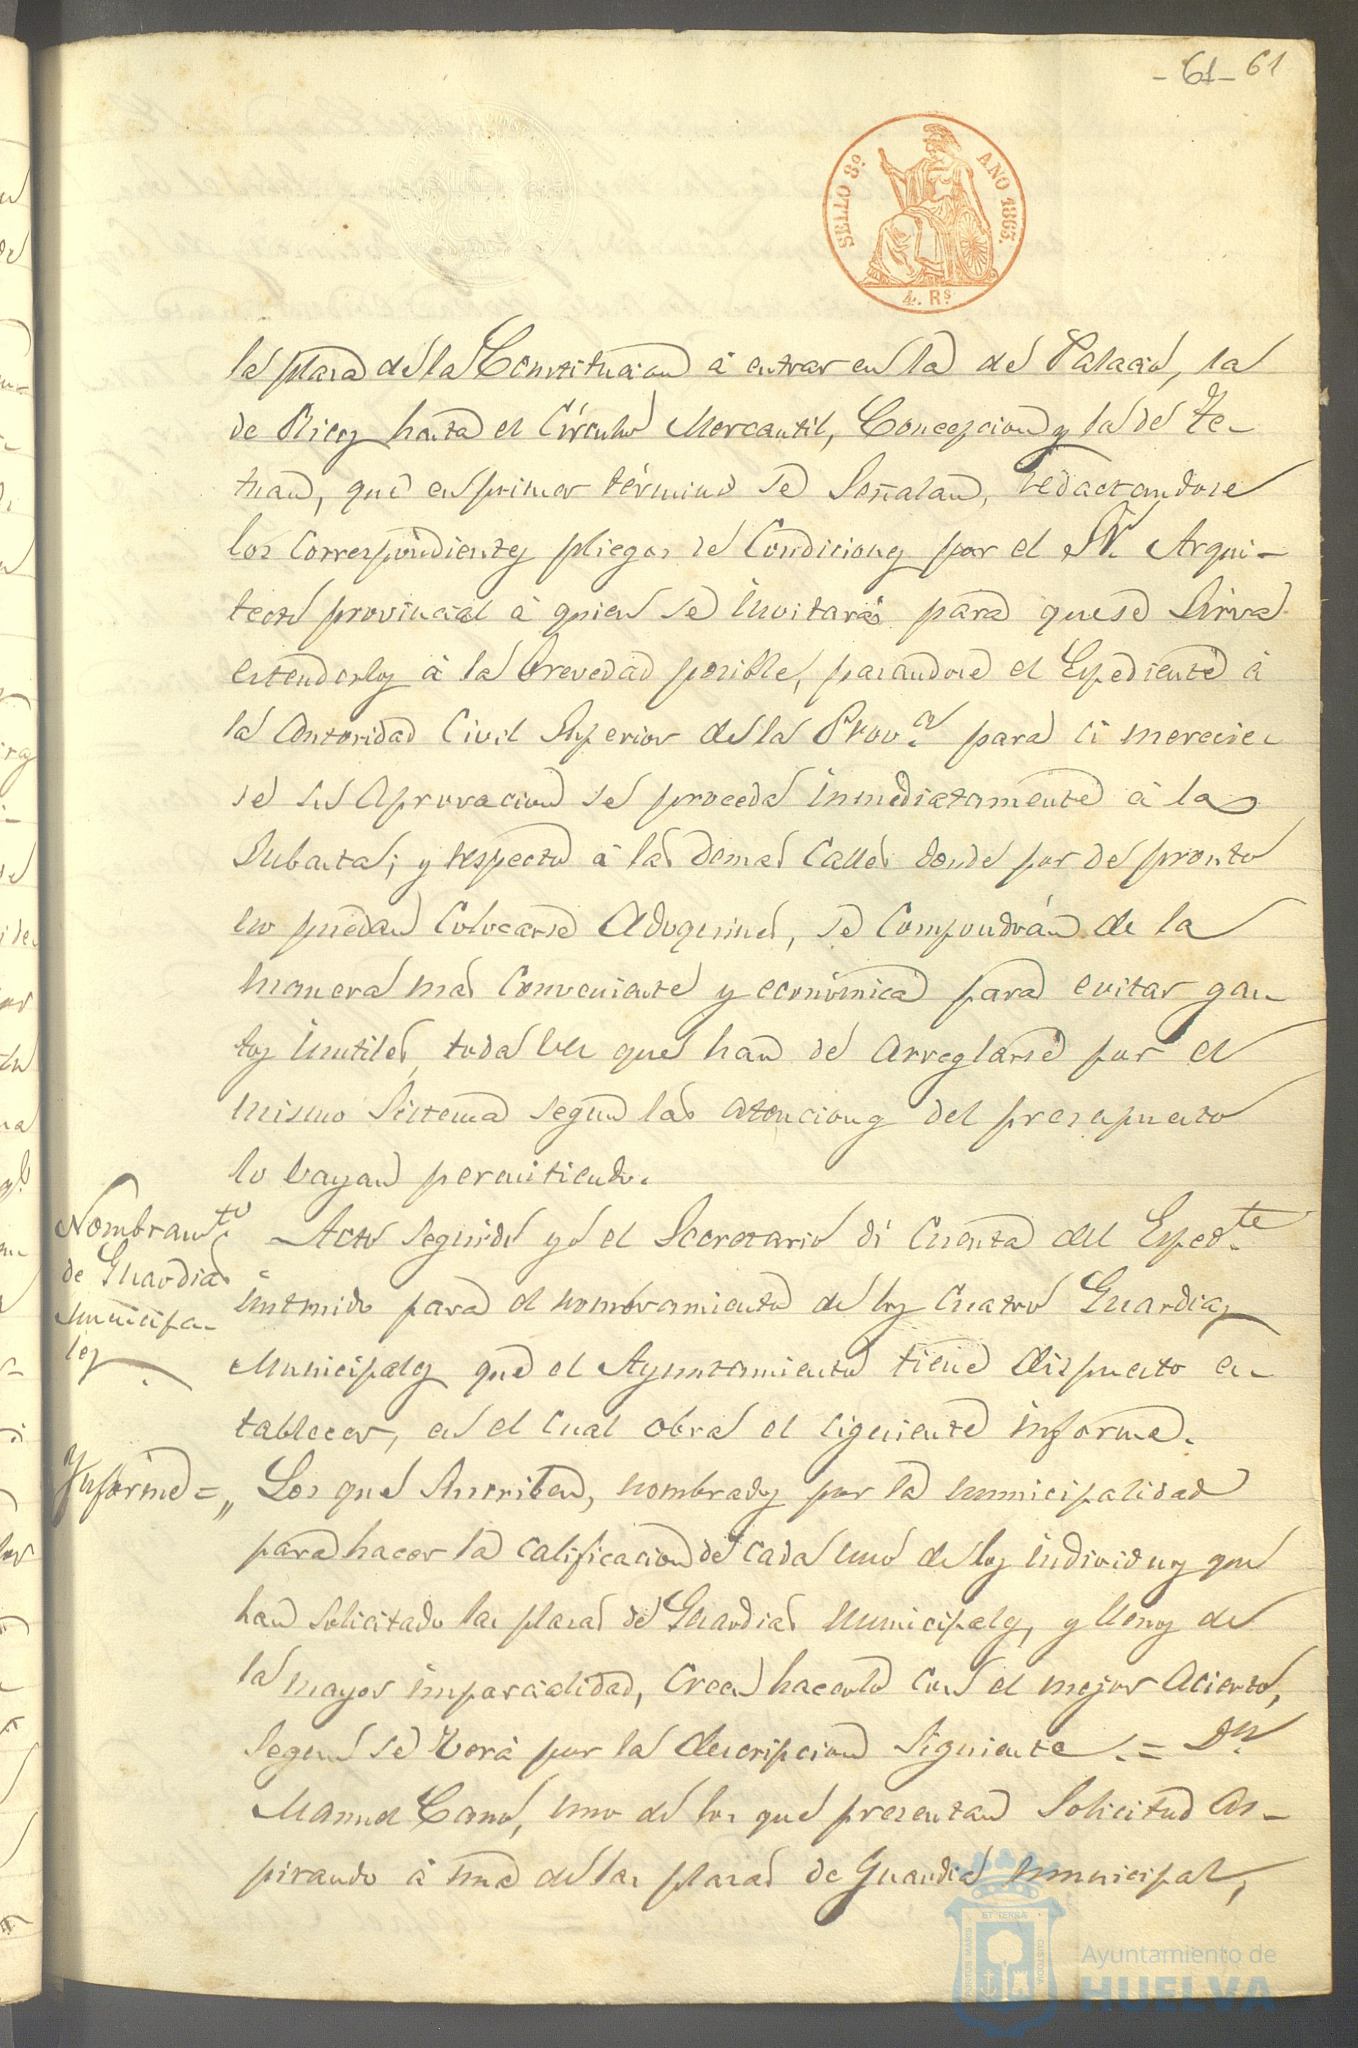 -61- 61
SELLO 8º AÑO 1863.
4. Rs
la plaza de la Constitucion á entrar en la de Palacio, la
de Ricos hasta el Círculo Mercantil, Concepcion y la de Te-
tuan, que en primer término se Señalan, redactandose
los correspondientes pliegos de Condiciones por el Sr. Arqui-
tecto provincial á quien se invitará para que se Sirva
estenderlos á la brevedad posible, pasandose el Espediente á
la Autoridad Civil Superior de la Prov.ª para si merecie-
se su Aprovacion se proceda inmediatamente á la
Subasta; y respecto á las demas Calles donde por de pronto
no puedan Colocarse Adoquines, se Compondrán de la
manera mas Conveniente y económica para evitar gas-
tos inutiles, toda vez que han de arreglarse por el
mismo Sistema segun las atenciones del presupuesto
lo bayan permitiendo.
Nombramto
de Guardias
municipa-
les.
Acto seguido yo el Secretario dí Cuenta del Esped.te
instruido para el nombramiento de los Cuatro Guardias
Municipales que el Ayuntamiento tiene dispuesto es-
tablecer, en el cual obra el siguiente informe.
Informe = „ Los que Suscriben, nombrados por la municipalidad
para hacer la calificacion de cada uno de los individuos que
han solicitado las plazas de Guardias Municipales, y llenos de
la mayor imparcialidad, Creen hacerlo con el mejor Acierto,
segun se verá por la descripcion Siguiente. = Dn.
Manuel Cano, uno de los que presentan Solicitud as-
pirando á una de las plazas de Guardia municipal,
PORTUS MARIS ET TERRAE CUSTODIA
Ayuntamiento de
HUELVA